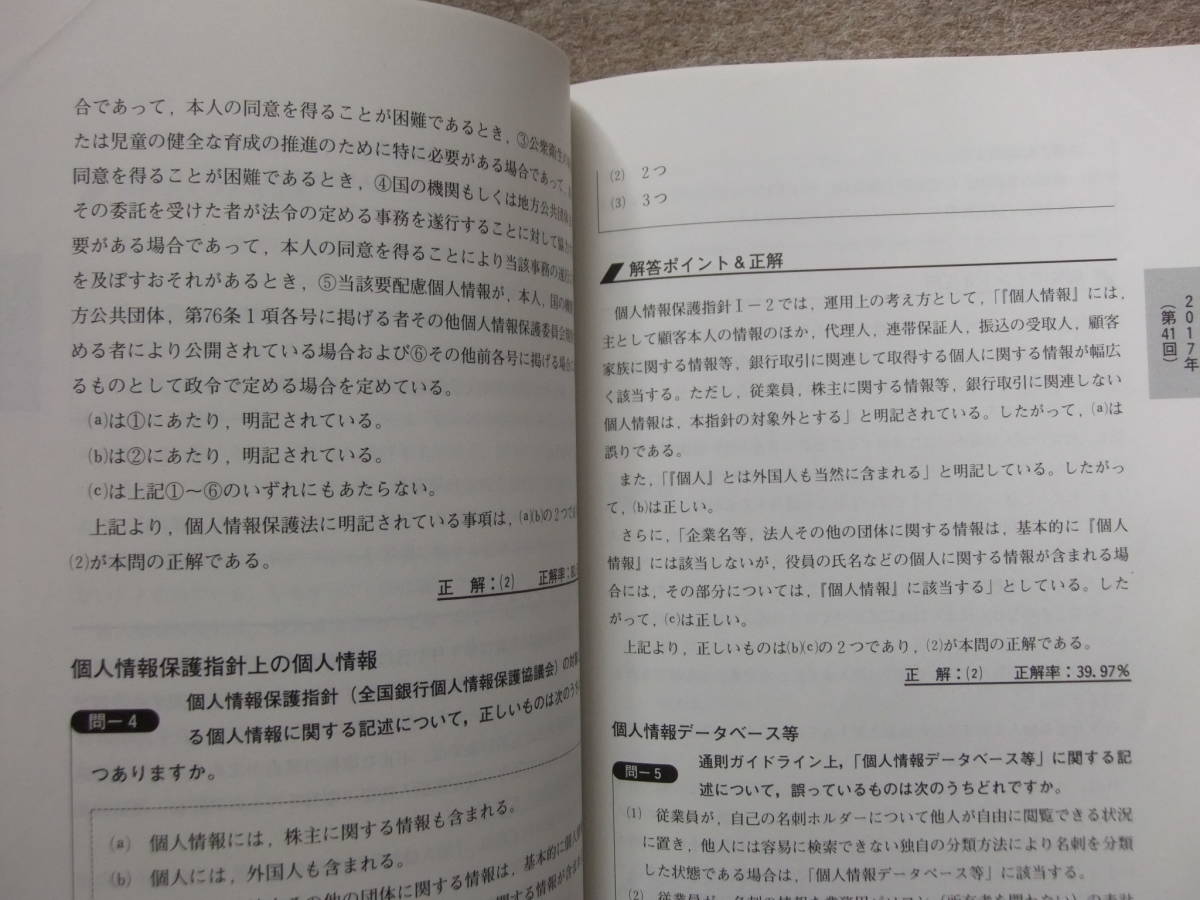 合であって，本人の同意を得ることが困難であるとき，③公衆衛生の
たは児童の健全な育成の推進のために特に必要がある場合であって，
同意を得ることが困難であるとき，④国の機関もしくは地方公共団体
その委託を受けた者が法令の定める事務を遂行することに対して協力
要がある場合であって，本人の同意を得ることにより当該事務の遂行
を及ぼすおそれがあるとき，⑤当該要配慮個人情報が，本人，国の機関
方公共団体，第76条1項各号に掲げる者その他個人情報保護委員会規則
める者により公開されている場合および⑥その他前各号に掲げる場合に
るものとして政令で定める場合を定めている。
(a)は①にあたり，明記されている。
(b)は②にあたり，明記されている。
(c)は上記①〜⑥のいずれにもあたらない。
上記より，個人情報保護法に明記されている事項は，(a)(b)の2つであ
(2)が本問の正解である。
正　解：(2)　正解率：
個人情報保護指針上の個人情報
問ー4
個人情報保護指針（全国銀行個人情報保護協議会）の対象
る個人情報に関する記述について，正しいものは次のうち
つありますか。
(a)　個人情報には，株主に関する情報も含まれる。
(b)　個人には，外国人も含まれる。
の他の団体に関する情報は，基本的に個人
関する情報が含ま
(2)　2つ
(3)　3つ
解答ポイント＆正解
個人情報保護指針Ⅰ－2では，運用上の考え方として，「『個人情報』には，
主として顧客本人の情報のほか，代理人，連帯保証人，振込の受取人，顧客
家族に関する情報等，銀行取引に関連して取得する個人に関する情報が幅広
く該当する。ただし，従業員，株主に関する情報等，銀行取引に関連しない
個人情報は，本指針の対象外とする」と明記されている。したがって，(a)は
誤りである。
また，「『個人』とは外国人も当然に含まれる」と明記している。したがっ
て，(b)は正しい。
さらに，「企業名等，法人その他の団体に関する情報は，基本的に『個人
情報』には該当しないが，役員の氏名などの個人に関する情報が含まれる場
合には，その部分については，『個人情報』に該当する」としている。した
がって，(c)は正しい。
上記より，正しいものは(b)(c)の2つであり，(2)が本問の正解である。
正　解：(2)　正解率：39.97％
個人情報データベース等
問ー5
通則ガイドライン上，「個人情報データベース等」に関する記
述について，誤っているものは次のうちどれですか。
(1)　従業員が，自己の名刺ホルダーについて他人が自由に閲覧できる状況
に置き，他人には容易に検索できない独自の分類方法により名刺を分類
した状態である場合は，「個人情報データベース等」に該当する。
(2)　従業員が，名刺の情報を業務用パソコン（所有者を問わない）の表計
2017年
（第41回）